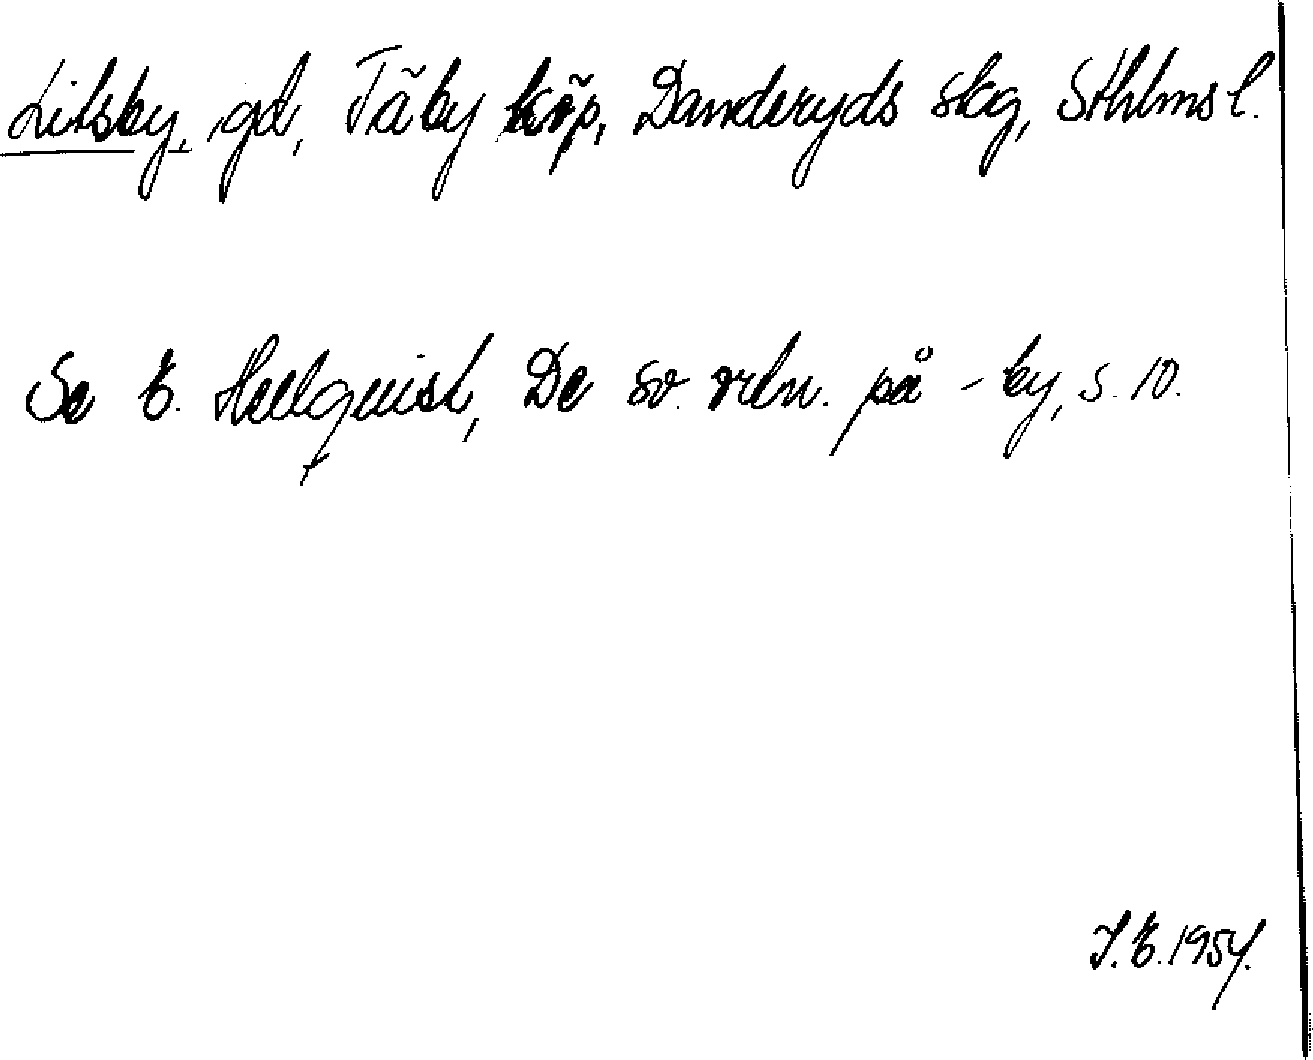 Litsby, gd, Täby köp, Danderyds skg, Sthlms l.
Se E. Hellquist, De sv. rtn. på -by, s. 10.
I. E. 1954.